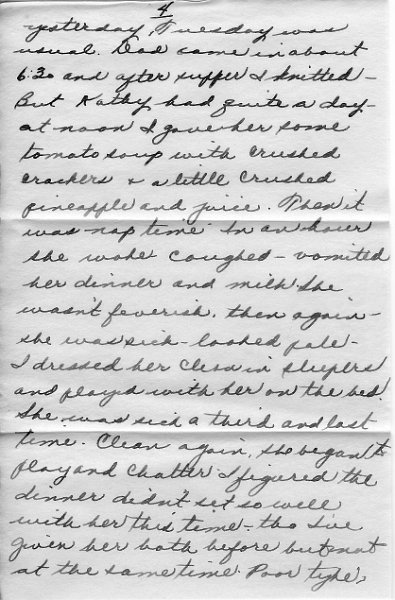 4
yesterday, Tuesday was
usual. Dad came in about
6:30 and after supper I knitted -
But Kathy had quite a day -
at noon I gave her some
tomato soup with crushed
crackers & a little crushed
pineapple and juice. Then it
was nap time. In an hour
she woke coughed - vomited
her dinner and milk She
wasn't feverish. then again -
she was sick - looked pale -
I dressed her clean in sleepers
and played with her on the bed.
She was sick a third and last
time. Clean again, she began to
play and chatter I figured the
dinner didn't set so well
with her this time - tho I've
given her both before but not
at the same time. Poor tyke,